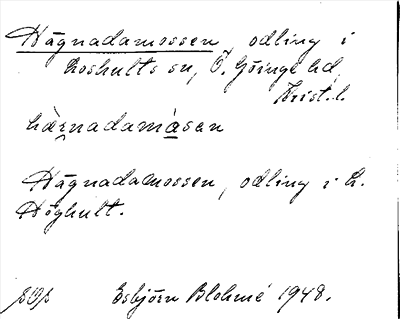 Hägnadamossen, odling i
Loshults sn, Ö. Göinge hd
Krist. l.
hæŋnadamåsen
Hägnadamossen, odling i L.
Höghult.
Esbjörn Blohmé 1948.